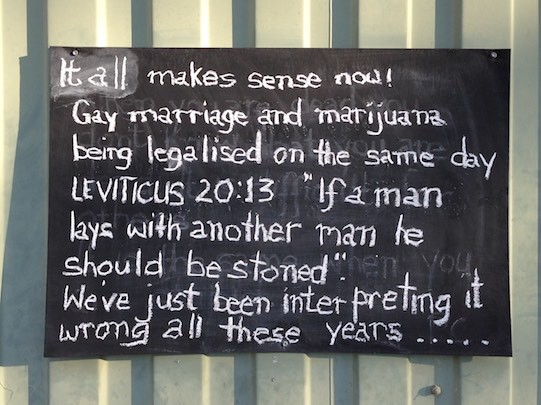 It all makes sense now!
Gay marriage and marijuana
being legalised on the same day
LEVITICUS 20:13 "If a man
lays with another man he
should be stoned".
We've just been interpreting it
wrong all these years .....